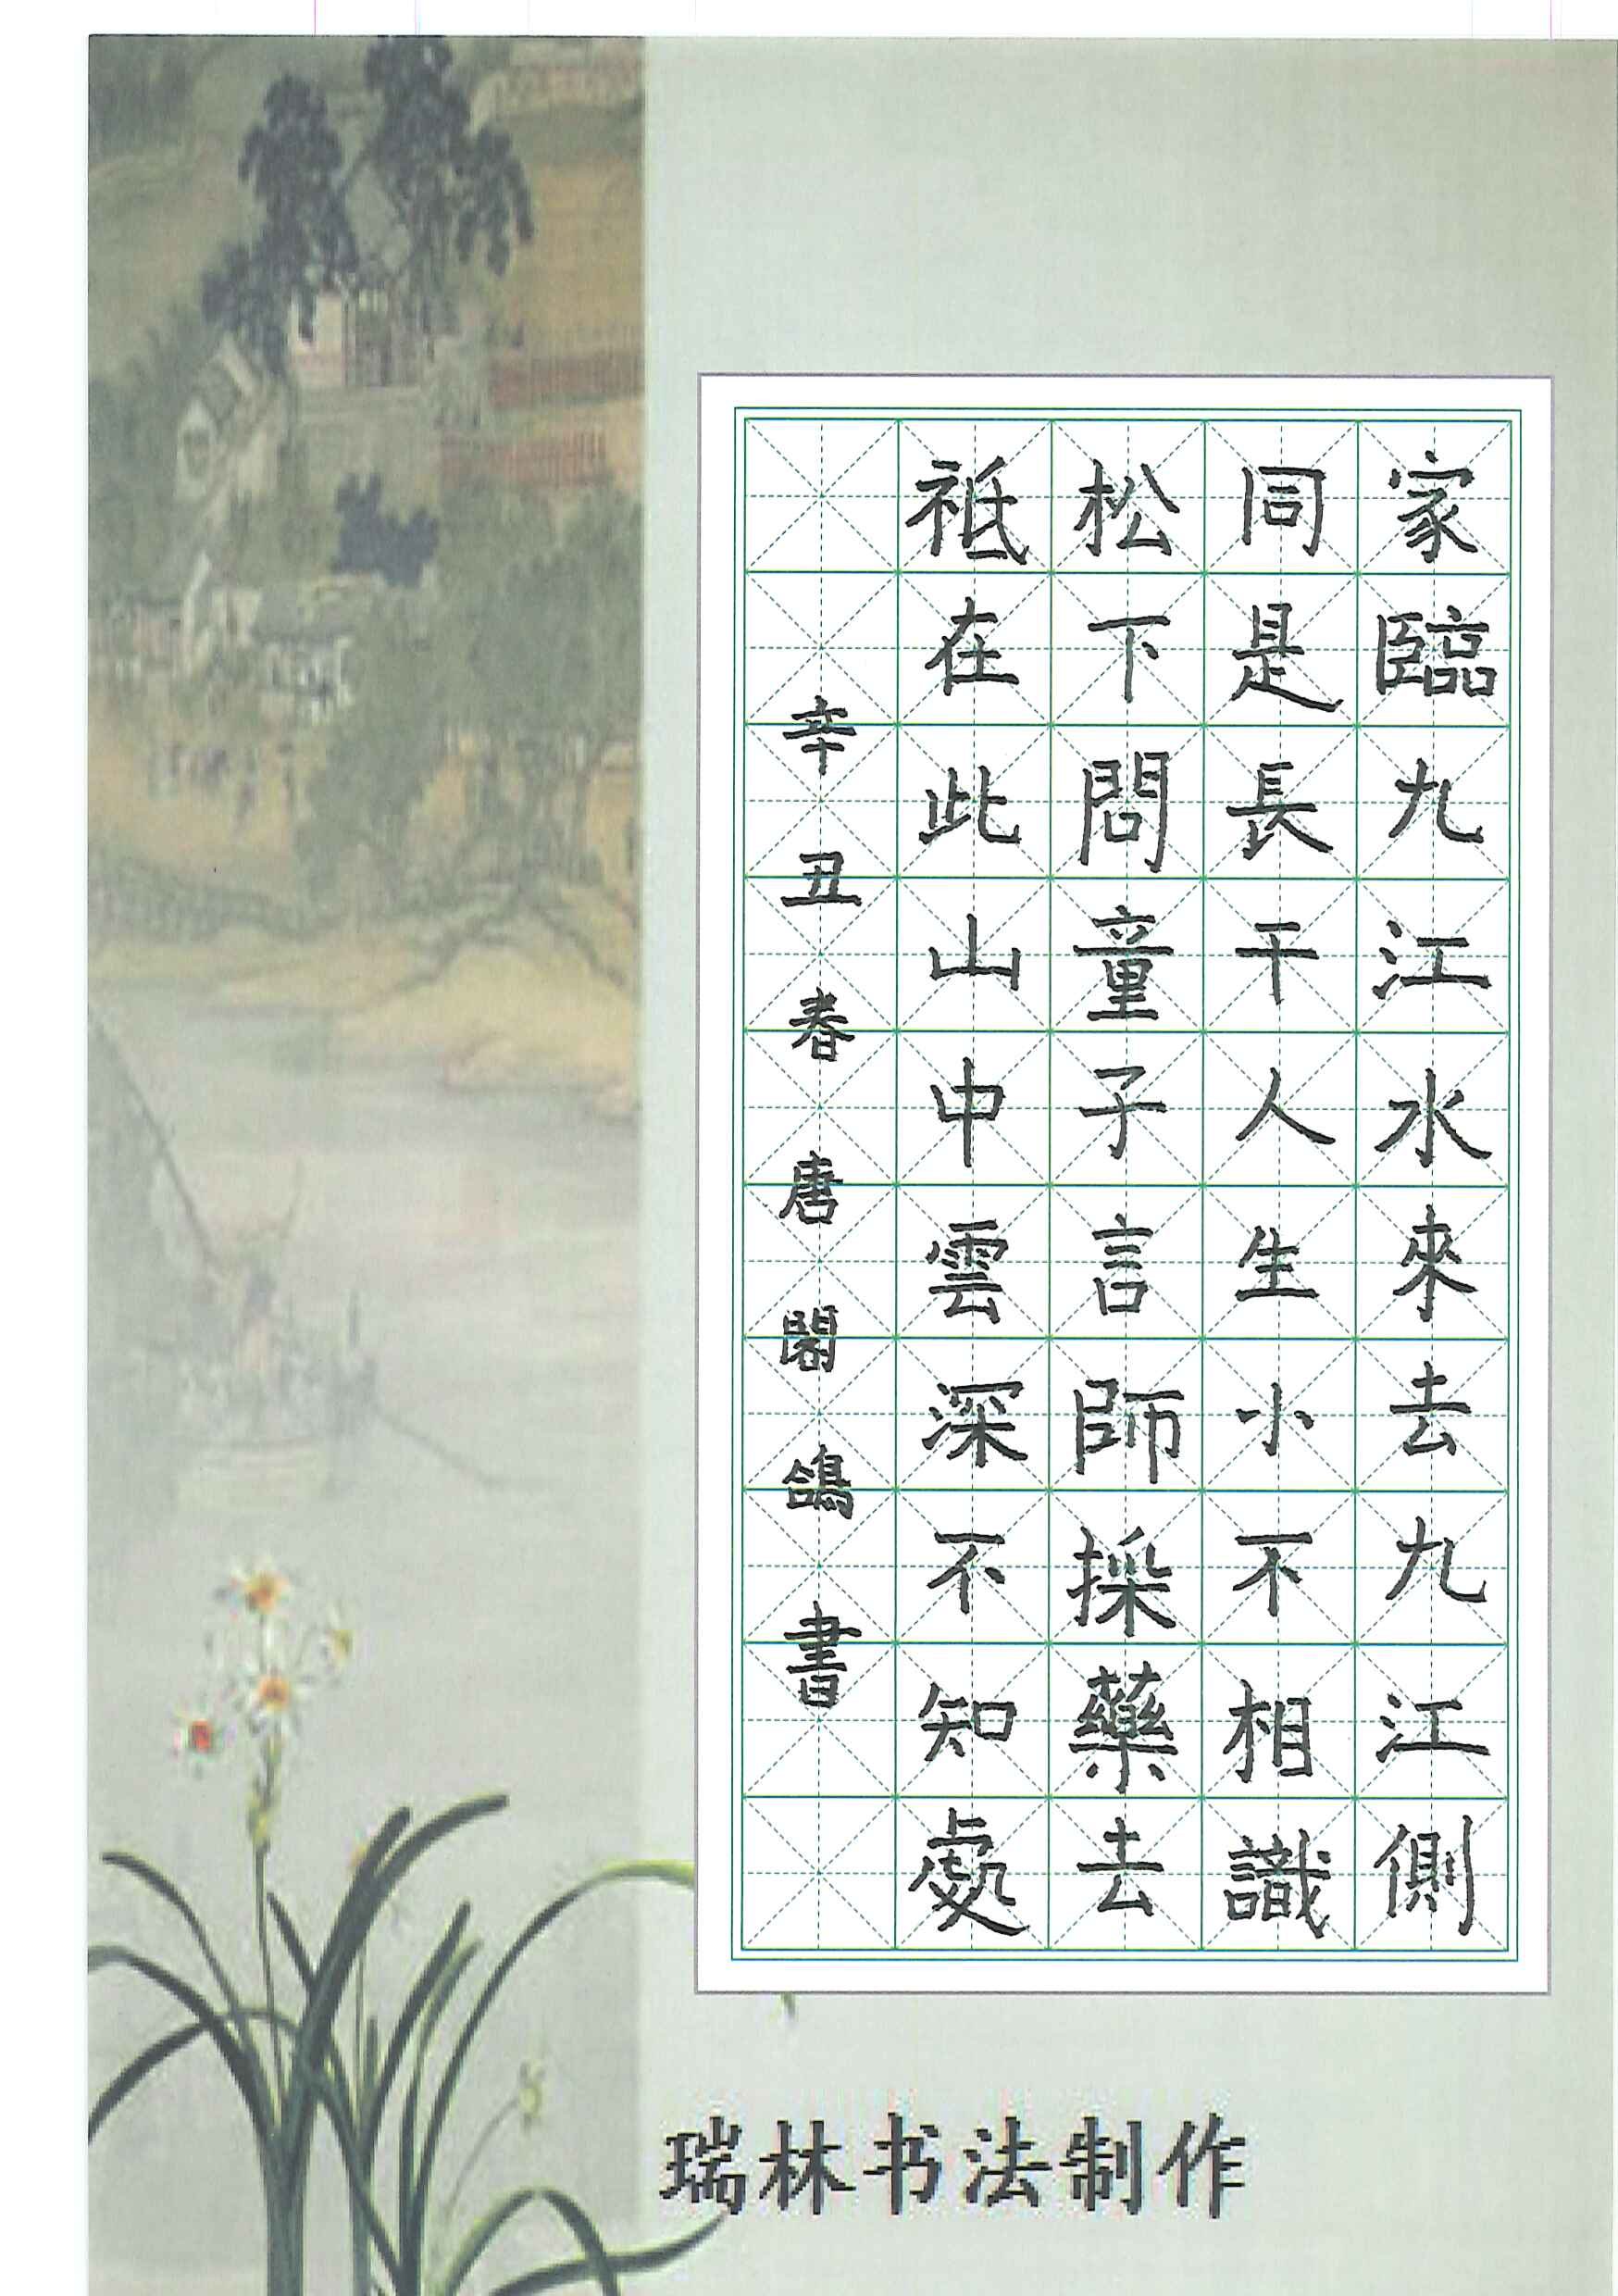 家臨九江水來去九江側
同是長干人生小不相識
松下問童子言師採藥去
祗在此山中雲深不知處
辛丑春唐閣鴿書
瑞林书法制作